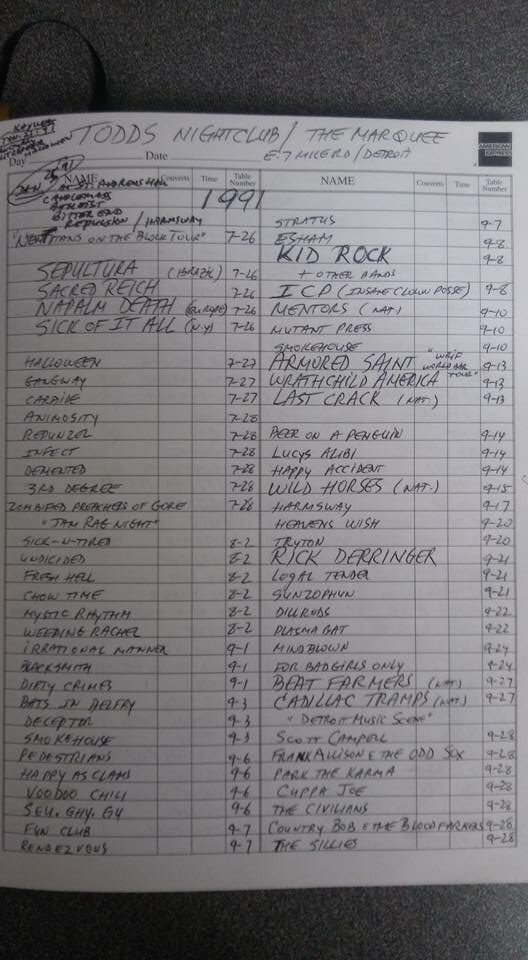 TODDS NIGHTCLUB / THE MARQUEE
E. 7 MILE RD / DETROIT
Day Date
AMERICAN EXPRESS
NAME Converts Time Table Number NAME Converts Time Table Number
JAN AT ST. ANDREWS HALL
ATHEIST
BITTER END
REPULSION / HARMSWAY
1991
"NEW TITANS ON THE BLOCK TOUR" 7-26
SEPULTURA (BRAZIL) 7-26
SACRED REICH 7-26
NAPALM DEATH (EUROPE) 7-26
SICK OF IT ALL (N.Y) 7-26
HALLOWEEN 7-27
GANGWAY 7-27
CARBIDE 7-27
ANIMOSITY 7-28
REPUNZEL 7-28
INFECT 7-28
DEMENTED 7-28
3RD DEGREE 7-28
ZOMBIFIED PREACHERS OF GORE 7-28
"JAM RAG NIGHT"
SICK-N-TIRED 8-2
UNDICIDED 8-2
FRESH HELL 8-2
CHOW TIME 8-2
MYSTIC RHYTHM 8-2
WEEPING RACHEL 8-2
IRRATIONAL MANNER 9-1
BLACKSMITH 9-1
DIRTY CRIMES 9-1
BATS IN BELFRY 9-3
DECEPTOR 9-3
SMOKEHOUSE 9-3
PEDESTRIANS 9-6
HAPPY AS CLAMS 9-6
VOODOO CHILI 9-6
SEV. GHY. GY 9-6
FUN CLUB 9-7
RENDEZVOUS 9-7
STRATUS 9-7
ESHAM 9-8
KID ROCK 9-8
+ OTHER BANDS
ICP (INSANE CLOWN POSSE) 9-8
MENTORS (NAT.) 9-10
MUTANT PRESS 9-10
SMOKEHOUSE 9-10
ARMORED SAINT "WRIF WORLD WAR TOUR" 9-13
WRATHCHILD AMERICA 9-13
LAST CRACK (NAT.) 9-13
BEER ON A PENGUIN 9-14
LUCYS ALIBI 9-14
HAPPY ACCIDENT 9-14
WILD HORSES (NAT.) 9-15
HARMSWAY 9-17
HEAVENS WISH 9-20
TRYTON 9-20
RICK DERRINGER 9-21
LOGAL TENDER 9-21
SUNZOPHUN 9-21
DILLRODS 9-22
PLASMA BAT 9-22
MIND BLOWN 9-24
FOR BADGIRLS ONLY 9-24
BEAT FARMERS (NAT.) 9-27
CADILLAC TRAMPS (NAT.) 9-27
"DETROIT MUSIC SCENE"
SCOTT CAMPELL 9-28
FRANK ALLISON & THE ODD SOX 9-28
PARK THE KARMA 9-28
CUPPA JOE 9-28
THE CIVILIANS 9-28
COUNTRY BOB & THE BLOOD FARMERS 9-28
THE SILLIES 9-28